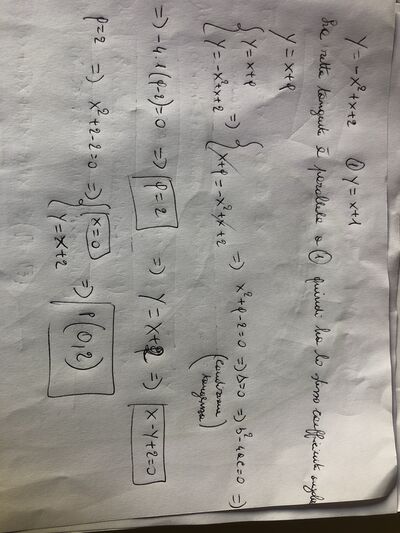 y = -x²+x+2   ① y = x+1
La retta tangente è parallela a ① quindi ha lo stesso coefficiente angolare
y = x+q
{ y = x+q
y = -x²+x+2 => { x+q = -x²+x+2 => x²+q-2=0 => Δ=0 => b²-4ac=0 =>
(condizione
tangenza)
=> -4·1(q-2)=0 => q=2 => y = x+2 => x-y+2=0
q=2 => x²+2-2=0 => { x=0
y = x+2 => P(0,2)